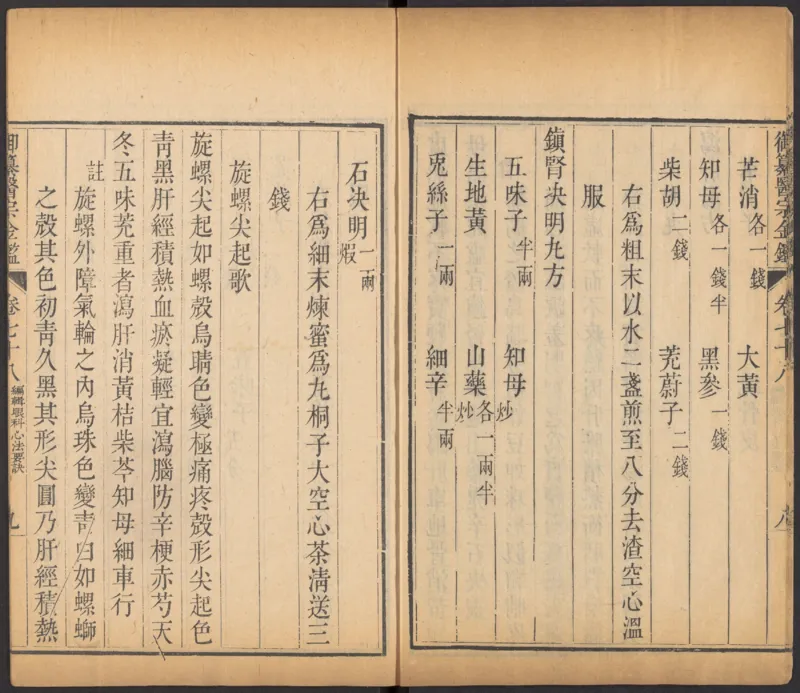 御纂醫宗金鑑 卷七十八 八
芒消各一錢 大黃
知母各一錢半 黑參一錢
柴胡二錢 茺蔚子二錢
右爲粗末以水二盞煎至八分去渣空心溫
服
鎮腎決明丸方
五味子半兩 知母炒
生地黃 山藥炒各一兩半
兎絲子一兩 細辛半兩
石决明一兩煆
右爲細末煉蜜爲丸桐子大空心茶淸送三
錢
旋螺尖起歌
旋螺尖起如螺殼烏睛色變極痛疼殼形尖起色
靑黑肝經積熱血瘀凝輕宜瀉腦防辛梗赤芍天
冬五味茺重者瀉肝消黃桔柴芩知母細車行
註 旋螺外障氣輪之內烏珠色變靑白如螺螄
之殼其色初靑久黑其形尖圓乃肝經積熱
御纂醫宗金鑑 卷七十八 編輯眼科心法要訣 九